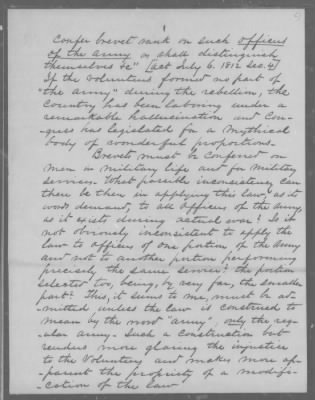 Confer brevet rank on such officers
of the army as shall distinguish
themselves &c" [act July 6. 1812 Sec. 4]
If the Volunteers formed no part of
"the army" during the rebellion, the
Country has been laboring under a
remarkable hallucination and Con-
gress has legislated for a Mythical
body of wonderful proportions.
Brevets must be Conferred on
men in military life and for military
services. What possible inconsistency can
there be then in applying this law, as its
words demand, to all Officers of the Army
as it exists during actual war? Is it
not obviously inconsistent to apply the
law to officers of one portion of the Army
and not to another portion performing
precisely the same service? the portion
selected too, being, by very far, the smaller
part? This, it seems to me, must be ad-
mitted, unless the law is construed to
mean by the word "army", only the reg-
ular army. Such a construction but
renders more glaring the injustice
to the Volunteers and makes more ap-
parent the propriety of a modifi-
cation of the law